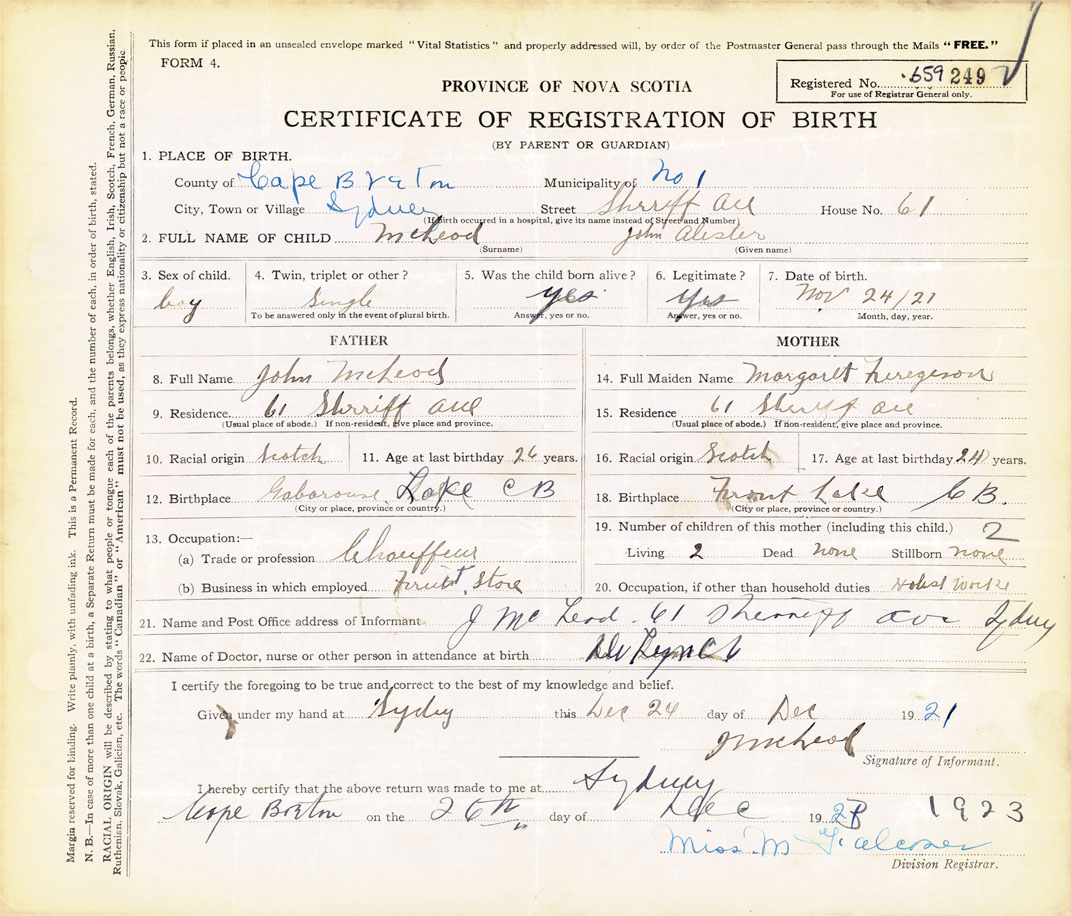 This form if placed in an unsealed envelope marked "Vital Statistics" and properly addressed will, by order of the Postmaster General pass through the Mails "FREE."
FORM 4.
Registered No. 659 249
For use of Registrar General only.
PROVINCE OF NOVA SCOTIA
CERTIFICATE OF REGISTRATION OF BIRTH
(BY PARENT OR GUARDIAN)
1. PLACE OF BIRTH.
County of Cape Breton Municipality of No 1
City, Town or Village Sydney Street Sherriff Ave House No. 61
(If birth occurred in a hospital, give its name instead of Street and Number)
2. FULL NAME OF CHILD McLeod John Alester
(Surname) (Given name)
3. Sex of child. 4. Twin, triplet or other? 5. Was the child born alive? 6. Legitimate? 7. Date of birth.
boy Single yes Yes Nov 24/21
To be answered only in the event of plural birth. Answer, yes or no. Answer, yes or no. Month, day, year.
FATHER MOTHER
8. Full Name John McLeod
14. Full Maiden Name Margaret
9. Residence. 61 Sherriff Ave
15. Residence 61 Sherriff Ave
(Usual place of abode.) If non-resident, give place and province.
(Usual place of abode.) If non-resident, give place and province.
10. Racial origin Scotch 11. Age at last birthday 26 years.
16. Racial origin Scotch 17. Age at last birthday 24 years.
12. Birthplace Gabarouse Lake C B
18. Birthplace Front Lake C B.
(City or place, province or country.)
(City or place, province or country.)
13. Occupation:—
19. Number of children of this mother (including this child.) 2
(a) Trade or profession Chauffeur
Living 2 Dead none Stillborn none
(b) Business in which employed Fruit Store
20. Occupation, if other than household duties
21. Name and Post Office address of Informant J McLeod. 61 Sherriff Ave Sydney
22. Name of Doctor, nurse or other person in attendance at birth Dr Lynch
I certify the foregoing to be true and correct to the best of my knowledge and belief.
Given under my hand at Sydney this Dec 24 day of Dec 1921
J McLeod
Signature of Informant.
I hereby certify that the above return was made to me at Sydney
Cape Breton on the 26th day of Dec 19 1923
Miss M Falconer
Division Registrar.
Margin reserved for binding. Write plainly, with unfading ink. This is a Permanent Record.
N. B.—In case of more than one child at a birth, a Separate Return must be made for each, and the number of each, in order of birth, stated.
RACIAL ORIGIN will be described by stating to what people or tongue each of the parents belongs, whether English, Irish, Scotch, French, German, Russian,
Ruthenian, Slovak, Galician, etc. The words "Canadian" or "American" must not be used, as they express nationality or citizenship but not a race or people.